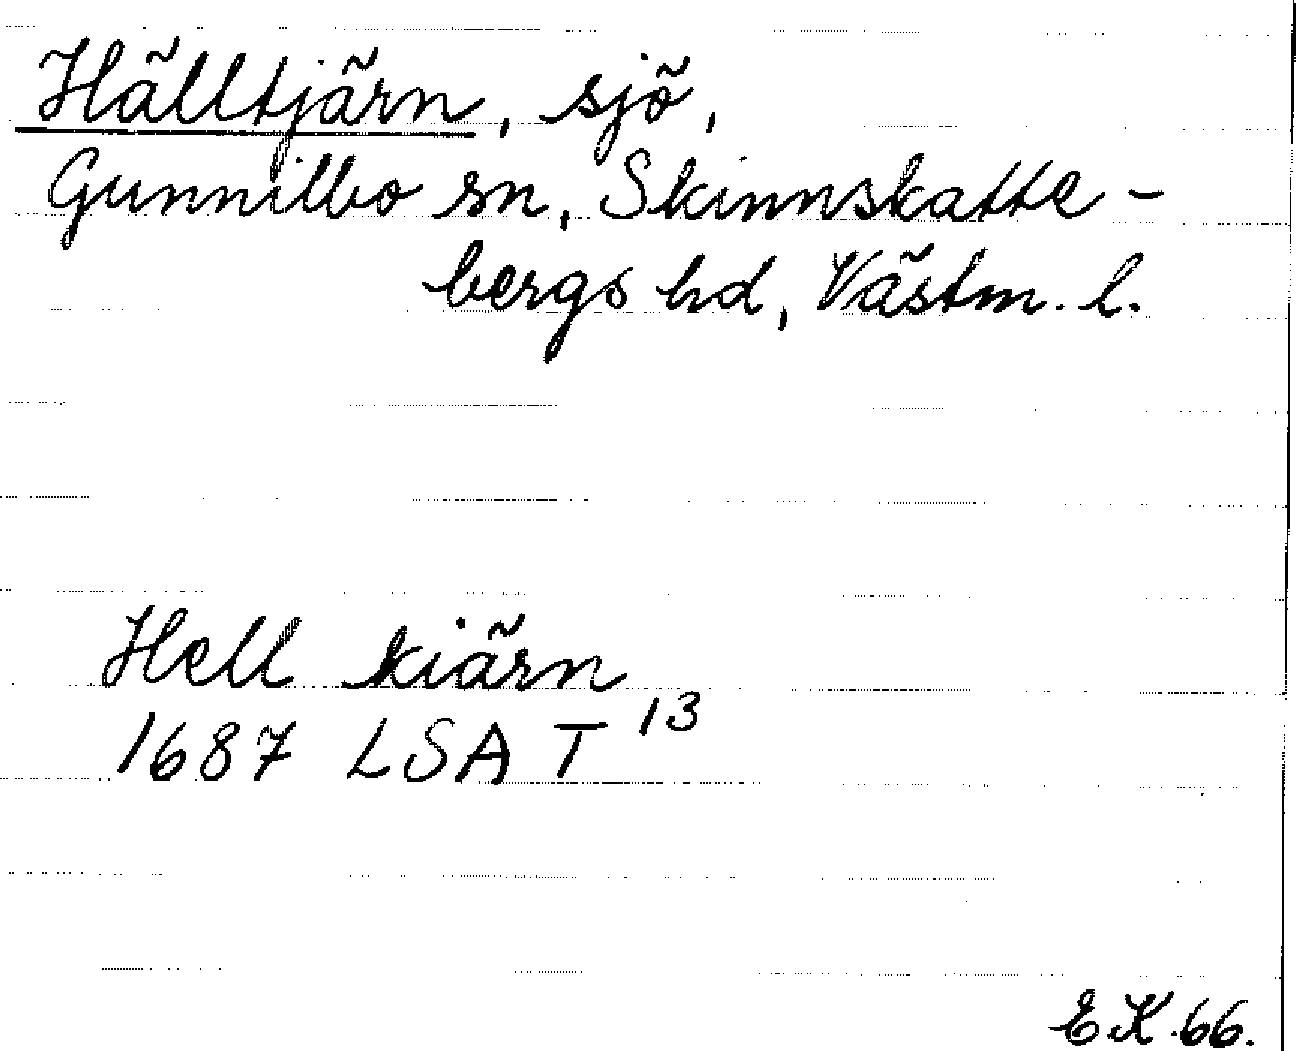 Hälltjärn, sjö,
Gunnilbo sn, Skinnskatte-
bergs hd, Västm. l.
Hell kiärn
1687 LSA T 13
E.K.66.